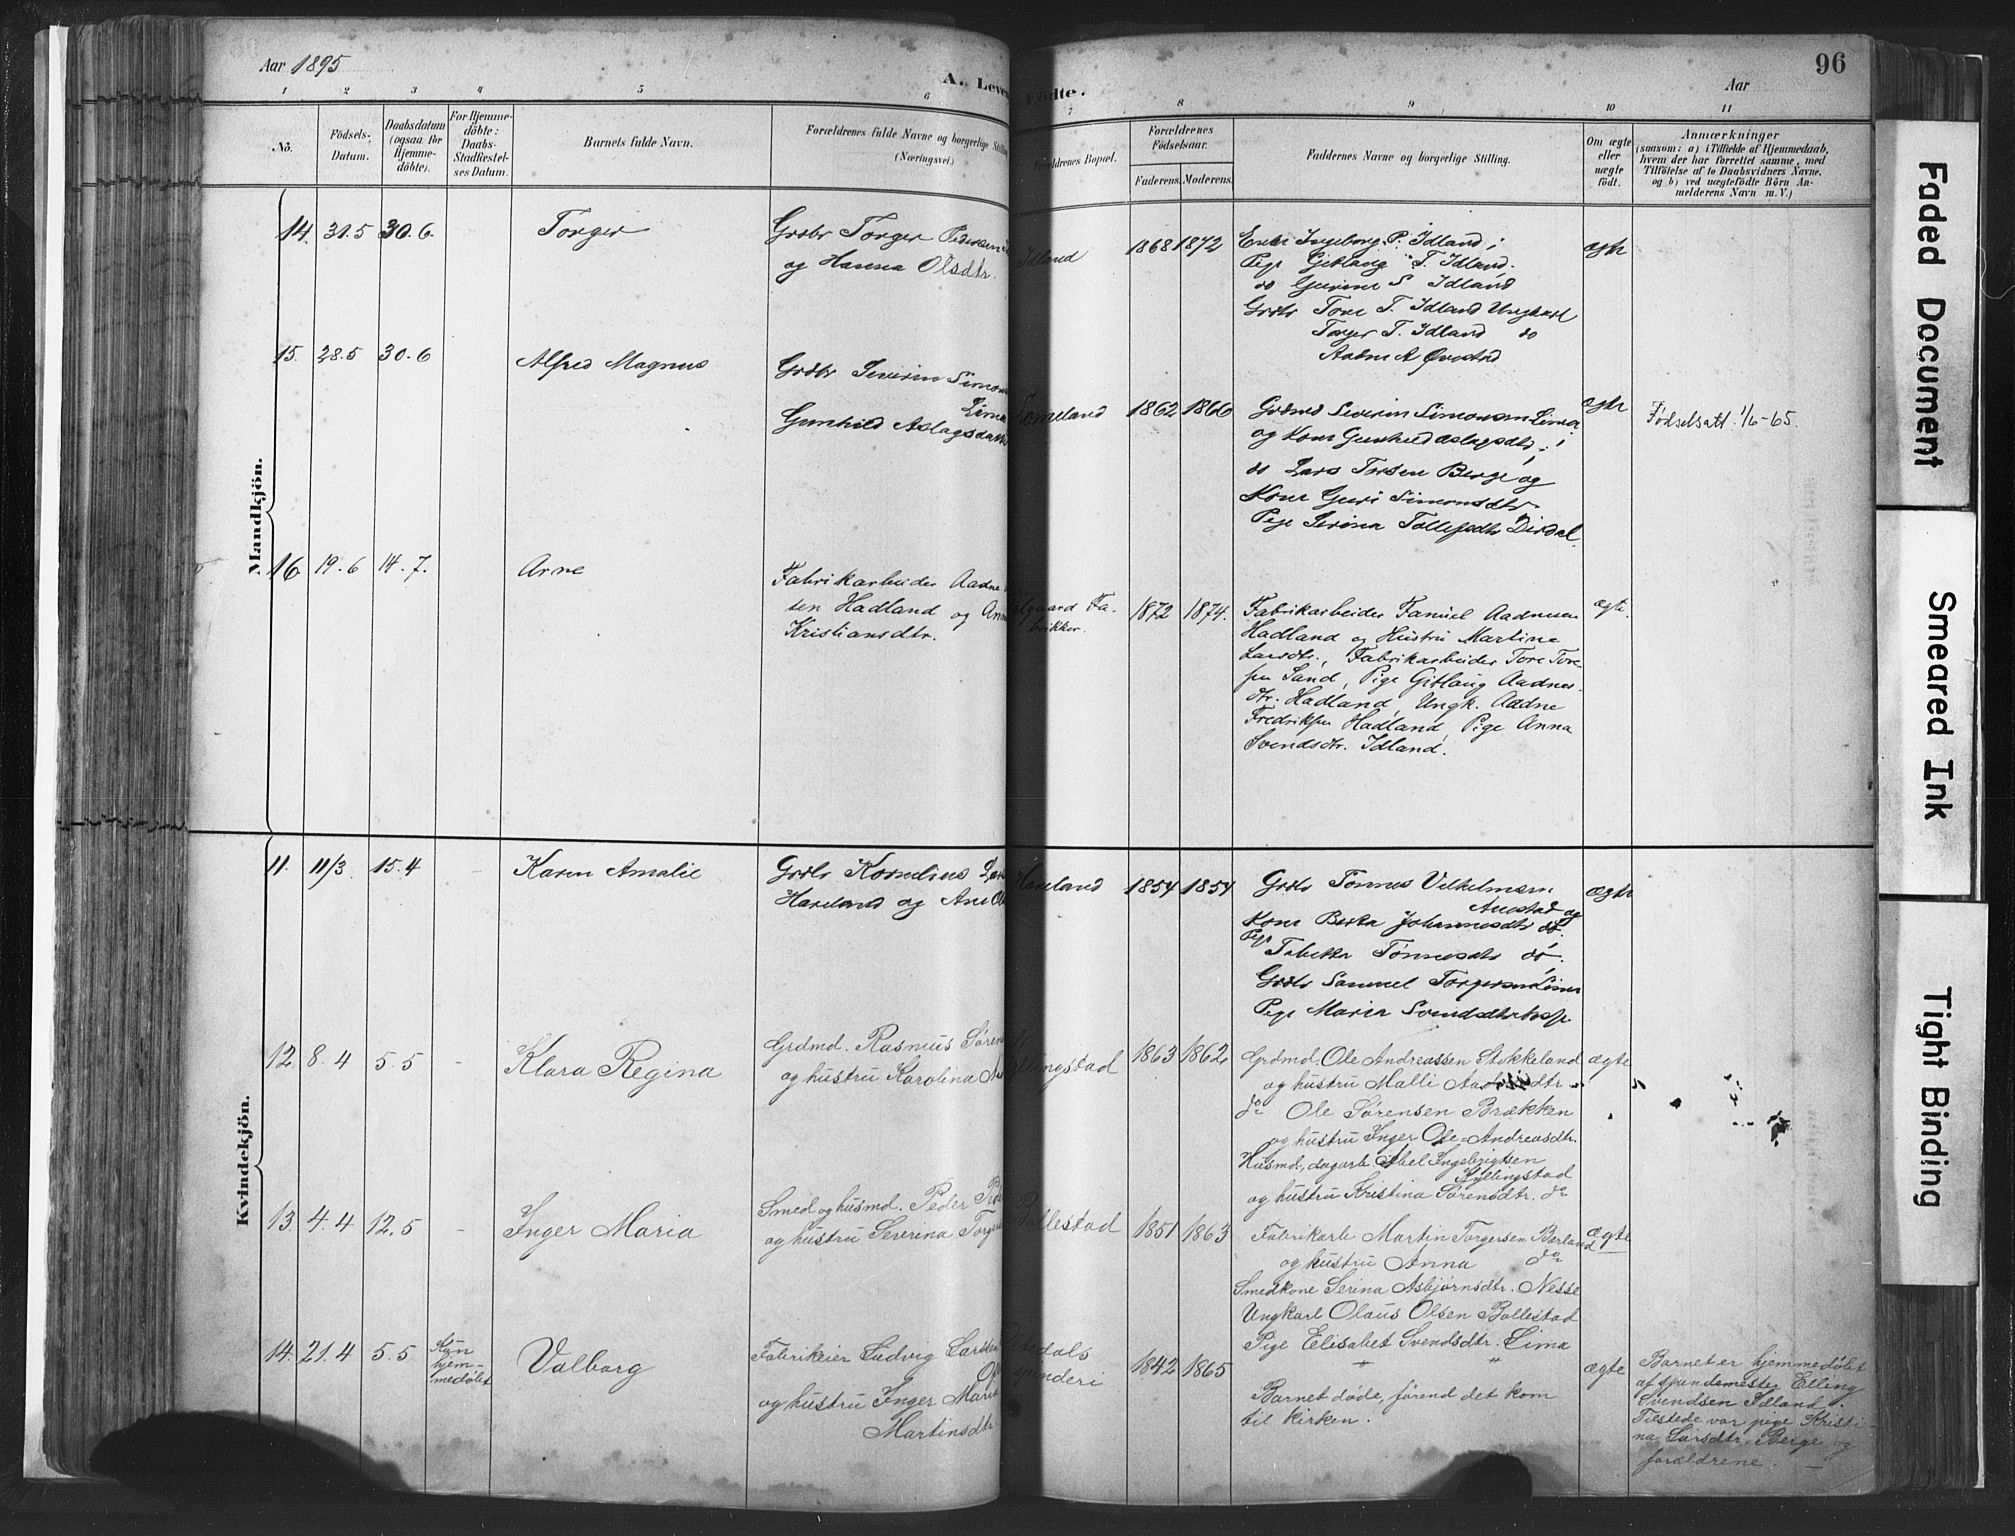 Aar 1895
A. Leve
Födte.
Aar
96
1 2 3 4 5 6 7 8 9 10 11
No.
Födsels-
Datum.
Daabsdatum
(ogsaa for
Hjemme-
döbte).
For Hjemme-
döbte:
Daabs-
Stadfæstel-
ses Datum.
Barnets fulde Navn.
Forældrenes fulde Navne og borgerlige Stilling
(Næringsvei)
Forældrenes Bopæl.
Forældrenes
Födselsaar.
Faderens. Moderens.
Faddernes Navne og borgerlige Stilling.
Om ægte
eller
uægte
födt.
Anmærkninger
(saasom: a) i Tilfælde af Hjemmedaab,
hvem der har forrettet samme, med
Tilföielse af to Daabsvidners Navne,
og b) ved uægtefödte Börn An-
melderens Navn m.V.)
Mandkjön.
14. 31.5 30.6. Torger
Grdbr Torger Pedersen
og Hanna Olsdtr.
Idland 1868 1872
Enke Ingeborg P. Idland;
Pige Gitlaug T. Idland.
do Gurine S Idland
Grdbr Tore T. Idland Ungkarl
Torger T. Idland do
Aadne A Øvestad
ægte
15. 28.5 30.6 Alfred Magnus
Grdbr Severin Simons
Lima
Gunhild Aslagsdatter
1862 1866
Grdmd Severin Simonsen Lima
og Kone Gunhild Aslagsdtr.;
do Lars Torsen Berge og
Kone Guri Simonsdtr.
Pige Serina Tollefsdtr Dirdal.
ægte
Fødselsatt. 1/6-65.
16. 19.6 14.7. Arne
Fabrikarbeider Aadne
sen Hadland og Anna
Kristiansdtr.
lgaard Fa-
brikker.
1872 1874.
Fabrikarbeider Samuel Aadnesen
Hadland og Hustru Martine
Larsdtr., Fabrikarbeider Tore Tore-
sen Sand, Pige Gitlaug Aadnes-
dtr. Hadland, Ungk. Aadne
Fredriksen Hadland, Pige Anna
Svendsdtr. Idland.
ægte.
Kvindekjön.
11. 11/3 15.4 Karen Amalie
Grdbr Kornelius Lar
Haveland og Ane Ol
Haveland 1854 1854
Grdbr Tønnes Vilhelmsen
Auestad og
Kone Berta Johannesdtr do.
Pige Tabitha Tønnesdtr do.
Grdbr Samuel Torgersen Lima
Pige Maria Svendsdtr
ægte
12. 8.4 5.5 - Klara Regina
Grdmd. Rasmus Søren
og hustru Karolina
llingstad 1863 1862.
Grdmd. Ole Andreassen Stokkeland
og hustru Malli
do Ole Sørensen Brækken
og hustru Inger Ole-Andreasdtr.
Husmd., dagarb. Abel Ingebrigtsen
Kyllingstad
og hustru Kristina Sørensdtr. do
ægte
13. 4.4 12.5 - Inger Maria
Smed og husmd. Peder Ped
og hustru Severina Torger
Bollestad 1851 1863
Fabrikarb. Martin Torgersen Berland
og hustru Anna do
Smedkone Serina Asbjørnsdtr. Nesse
Ungkarl Olaus Olsen Bollestad
Pige Elisabet Svendsdtr. Lima
ægte
14. 21.4 5.5
Kun
hjem-
medøbt
Valborg
Fabrikeier Ludvig Carlsen
og hustru Inger Maria
Martinsdtr
dals
spinderi
1842 1865
" "
Barnet døde, førend det kom
til kirken.
ægte
Barnet er hjemmedøbt
af spindemester Elling
Svendsen Idland.
Tilstede var pige Kristi-
na Larsdtr. Berge og
forældrene.
Faded Document
Smeared Ink
Tight Binding